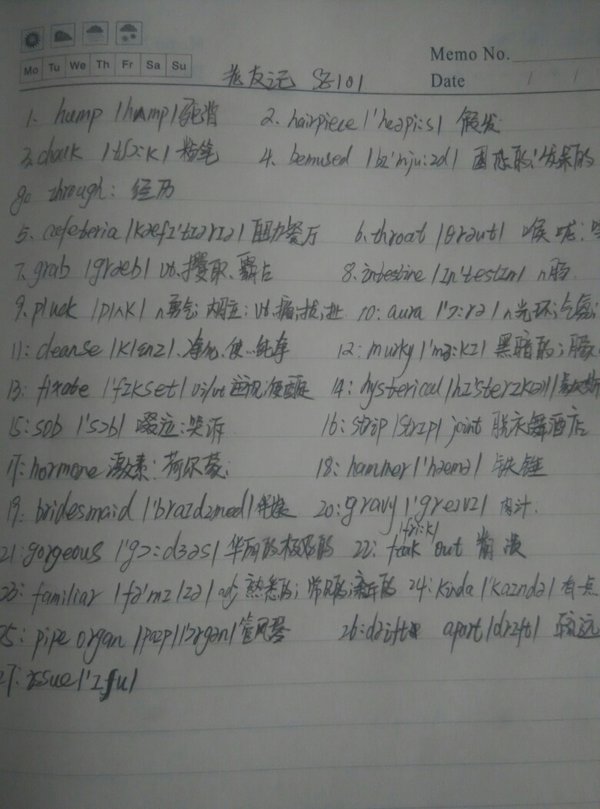 Memo No.
Mo Tu We Th Fr Sa Su
Date / /
老友记 S2101
1. hump |hʌmp| 驼背 2. hairpiece |'heəpi:s| 假发
3. chalk |tʃɔ:k| 粉笔 4. bemused |bɪ'mju:zd| 困惑的;发呆的
go through: 经历
5. cafeteria |kæfɪ'tɪərɪə| 自助餐厅 6. throat |θrəut| 喉咙;
7. grab |græb| vt. 攫取、霸占 8. intestine |ɪn'testɪn| n肠.
9. pluck |plʌk| n勇气; 内脏; vt. 摘;拔;扯 10: aura |'ɔ:rə| n光环;气氛;
11: cleanse |klenz| 净化.使...纯净 12: murky |'mɜ:kɪ| 黑暗的;朦
13: fixate |'fɪkseɪt| vi/vt 注视,使固定 14: hysterical |hɪ'sterɪkəl|
15: sob |'sɔb| 啜泣;哭诉 16: strip |strɪp| joint 脱衣舞酒店
17: hormone 激素;荷尔蒙; 18: hammer |'hæmə| 铁锤
19: bridesmaid |'braɪdzmeɪd| 伴娘 20: gravy |'greɪvɪ| 肉汁.
21: gorgeous |'gɔ:dʒəs| 华丽的极好的 22: freak |fri:k| out 崩溃
23: familiar |fə'mɪlɪə| adj 熟悉的;常见的;亲近的 24: kinda |'kaɪndə| 有点
25: pipe organ |paɪp||'ɔrgən| 管风琴 26: drift apart |drɪft| 疏远
27: issue |'ɪʃu|